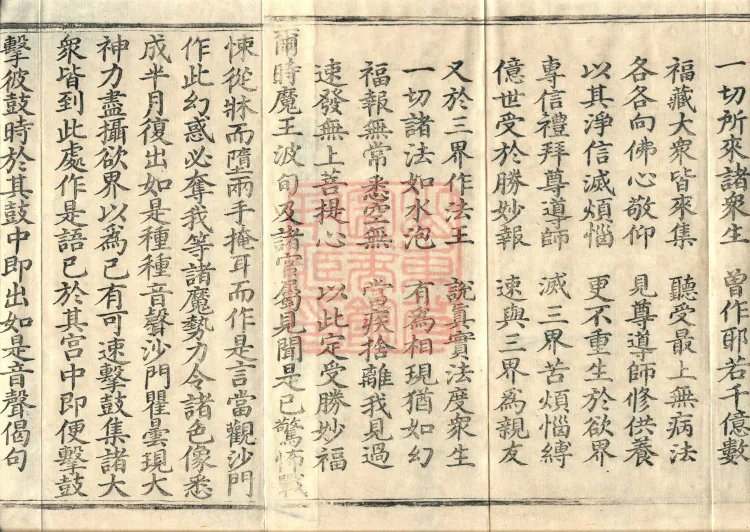 一切所來諸衆生　曾作耶若千億數
福藏大衆皆來集　聽受最上無病法
各各向佛心敬仰　見尊導師修供養
以其淨信滅煩惱　更不重生於欲界
專信禮拜尊導師　滅三界苦煩惱縛
億世受於勝妙報　速與三界爲親友
又於三界作法王　說真實法度衆生
一切諸法如水泡　有爲相現猶如幻
福報無常悉空無　當疾捨離我見過
速發無上菩提心　以此定受勝妙福
爾時魔王波旬及諸官屬見聞是已驚怖戰
悚從牀而墮兩手掩耳而作是言當觀沙門
作此幻惑必奪我等諸魔勢力令諸色像悉
成半月復出如是種種音聲沙門瞿曇現大
神力盡攝欲界以爲已有可速擊鼓集諸大
衆皆到此處作是語已於其宫中即便擊鼓
擊彼鼓時於其鼓中即出如是音聲偈句